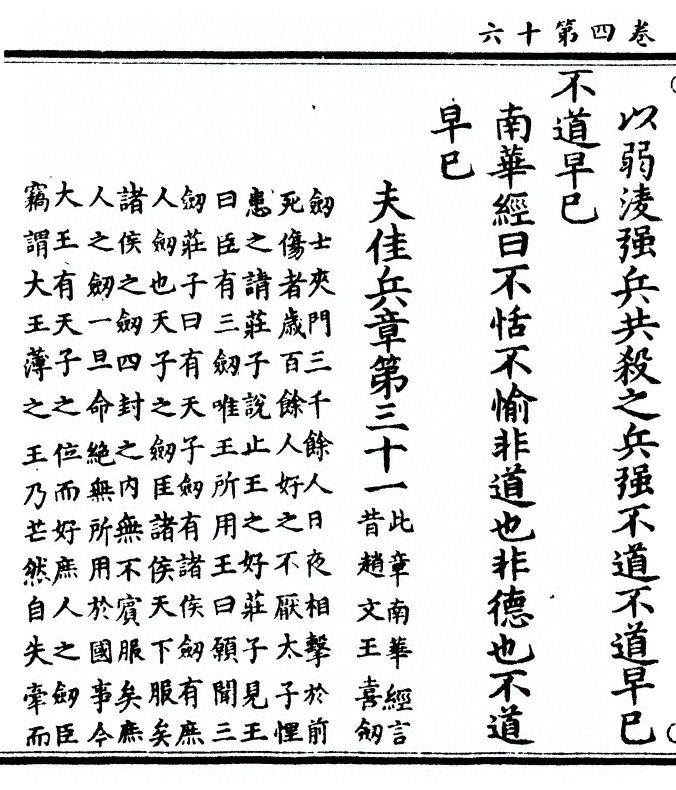 卷四第十六
以弱淩强兵共殺之兵强不道不道早已
不道早已
南華經曰不恬不愉非道也非德也不道
早已
夫佳兵章第三十一
此章南華經言
昔趙文王喜劒
劒士夾門三千餘人日夜相擊於前
死傷者歲百餘人好之不厭太子悝
患之請莊子說止王之好莊子見王
曰臣有三劒唯王所用王曰願聞三
劒莊子曰有天子劒有諸侯劒有庶
人劒也天子之劒匡諸侯天下服矣
諸侯之劒四封之内無不賓服矣庶
人之劒一旦命絶無所用於國事今
大王有天子之位而好庶人之劒臣
竊謂大王薄之王乃芒然自失牽而